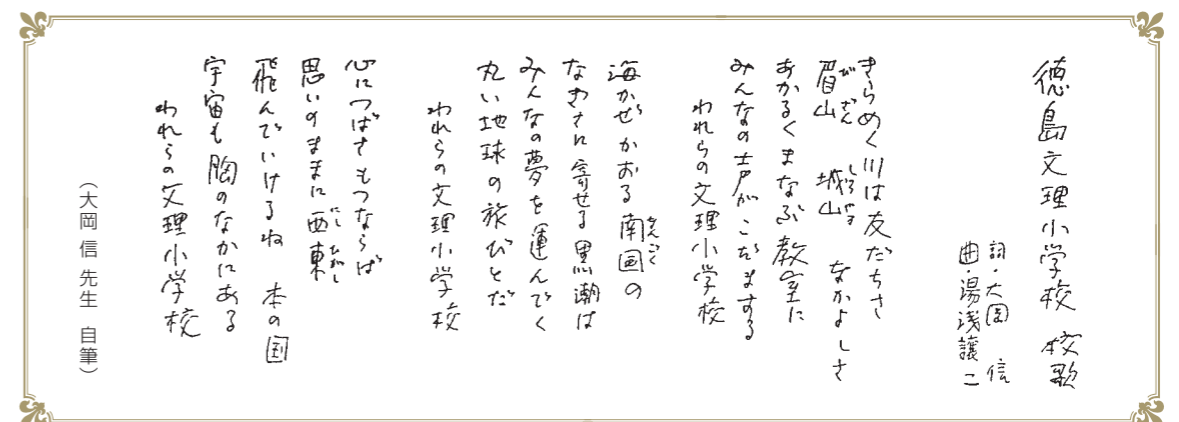 徳島文理小学校 校歌
詞・大岡 信
曲・湯浅譲二
きらめく川は友だちさ
眉山 城山 なかよしさ
びざん しろやま
あかるくまなぶ教室に
みんなの声がこだまする
われらの文理小学校
海かぜかおる南国の
なんごく
なぎさに寄せる黒潮は
みんなの夢を運んでく
丸い地球の旅びとだ
われらの文理小学校
心につばさもつならば
思いのままに西東
にし ひがし
飛んでいけるね 本の国
宇宙も胸のなかにある
われらの文理小学校
(大岡 信 先生 自筆)